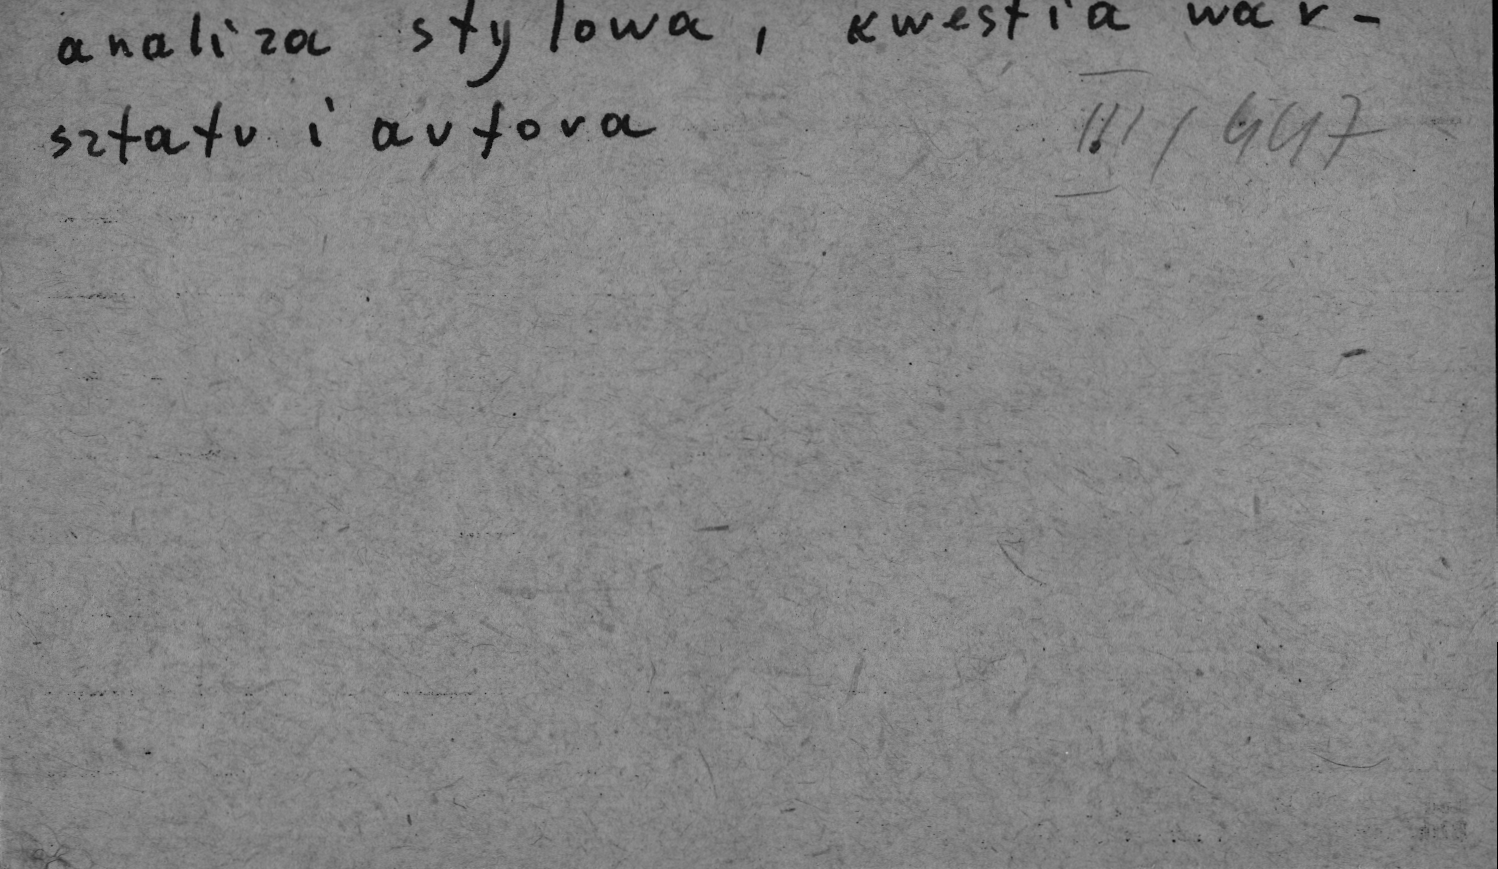 analiza stylowa, kwestia war-
sztatu i autora
III/447